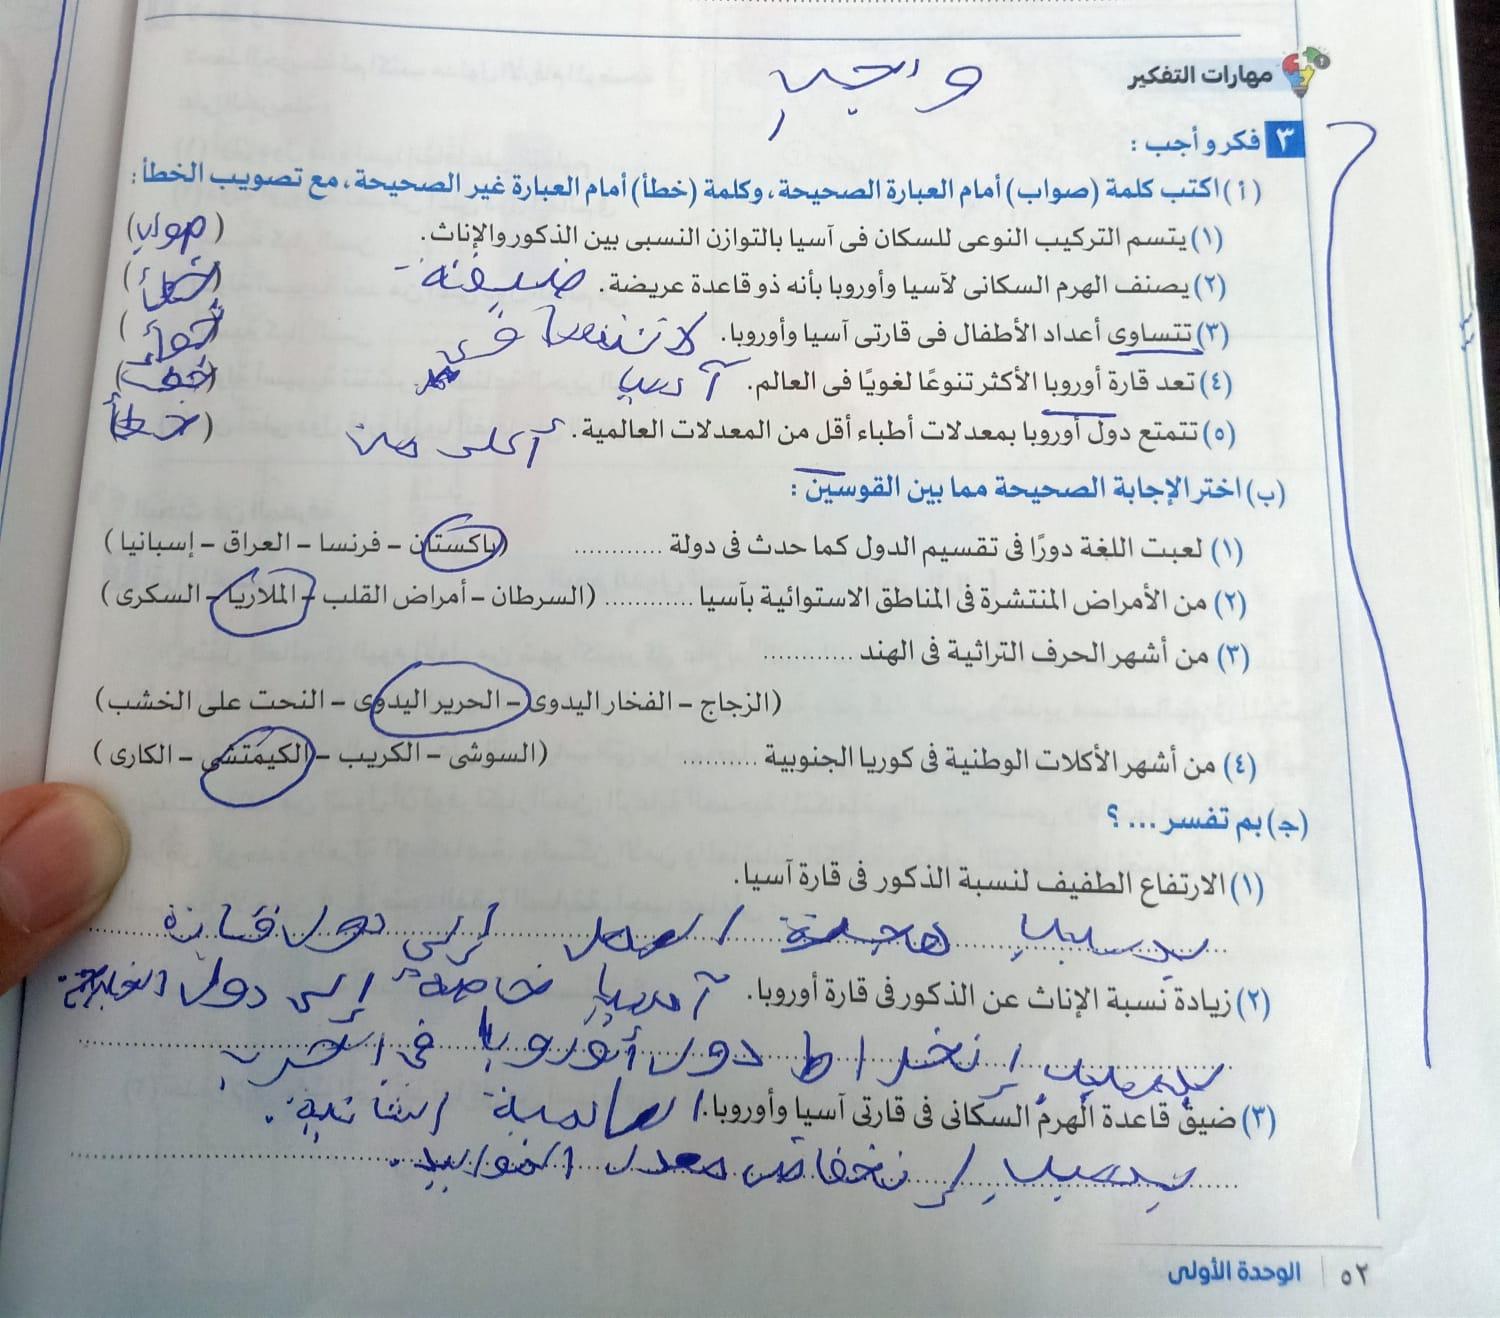 واجب
مهارات التفكير
٣ فكر وأجب :
(أ) اكتب كلمة (صواب) أمام العبارة الصحيحة، وكلمة (خطأ) أمام العبارة غير الصحيحة، مع تصويب الخطأ :
(١) يتسم التركيب النوعى للسكان فى آسيا بالتوازن النسبى بين الذكور والإناث. (صواب)
(٢) يصنف الهرم السكانى لآسيا وأوروبا بأنه ذو قاعدة عريضة. ضيقة (خطأ)
(٣) تتساوى أعداد الأطفال فى قارتى آسيا وأوروبا. لا تتساوى (خطأ)
(٤) تعد قارة أوروبا الأكثر تنوعًا لغويًا فى العالم. آسيا (خطأ)
(٥) تتمتع دول أوروبا بمعدلات أطباء أقل من المعدلات العالمية. أعلى من (خطأ)
(ب) اختر الإجابة الصحيحة مما بين القوسين :
(١) لعبت اللغة دورًا فى تقسيم الدول كما حدث فى دولة ............ (باكستان – فرنسا – العراق – إسبانيا)
(٢) من الأمراض المنتشرة فى المناطق الاستوائية بآسيا ............ (السرطان – أمراض القلب – الملاريا – السكرى)
(٣) من أشهر الحرف التراثية فى الهند ............
(الزجاج – الفخار اليدوى – الحرير اليدوى – النحت على الخشب)
(٤) من أشهر الأكلات الوطنية فى كوريا الجنوبية .......... (السوشى – الكريب – الكيمتشى – الكارى)
(ج) بم تفسر ... ؟
(١) الارتفاع الطفيف لنسبة الذكور فى قارة آسيا.
بسبب هجرة العمل إلى دول قارة
(٢) زيادة نسبة الإناث عن الذكور فى قارة أوروبا. آسيا خاصة إلى دول الخليج
بسبب إنخراط دول أوروبا فى الحرب
(٣) ضيق قاعدة الهرم السكانى فى قارتى آسيا وأوروبا. العالمية الثانية.
بسبب إنخفاض معدل المواليد.
٥٢ | الوحدة الأولى